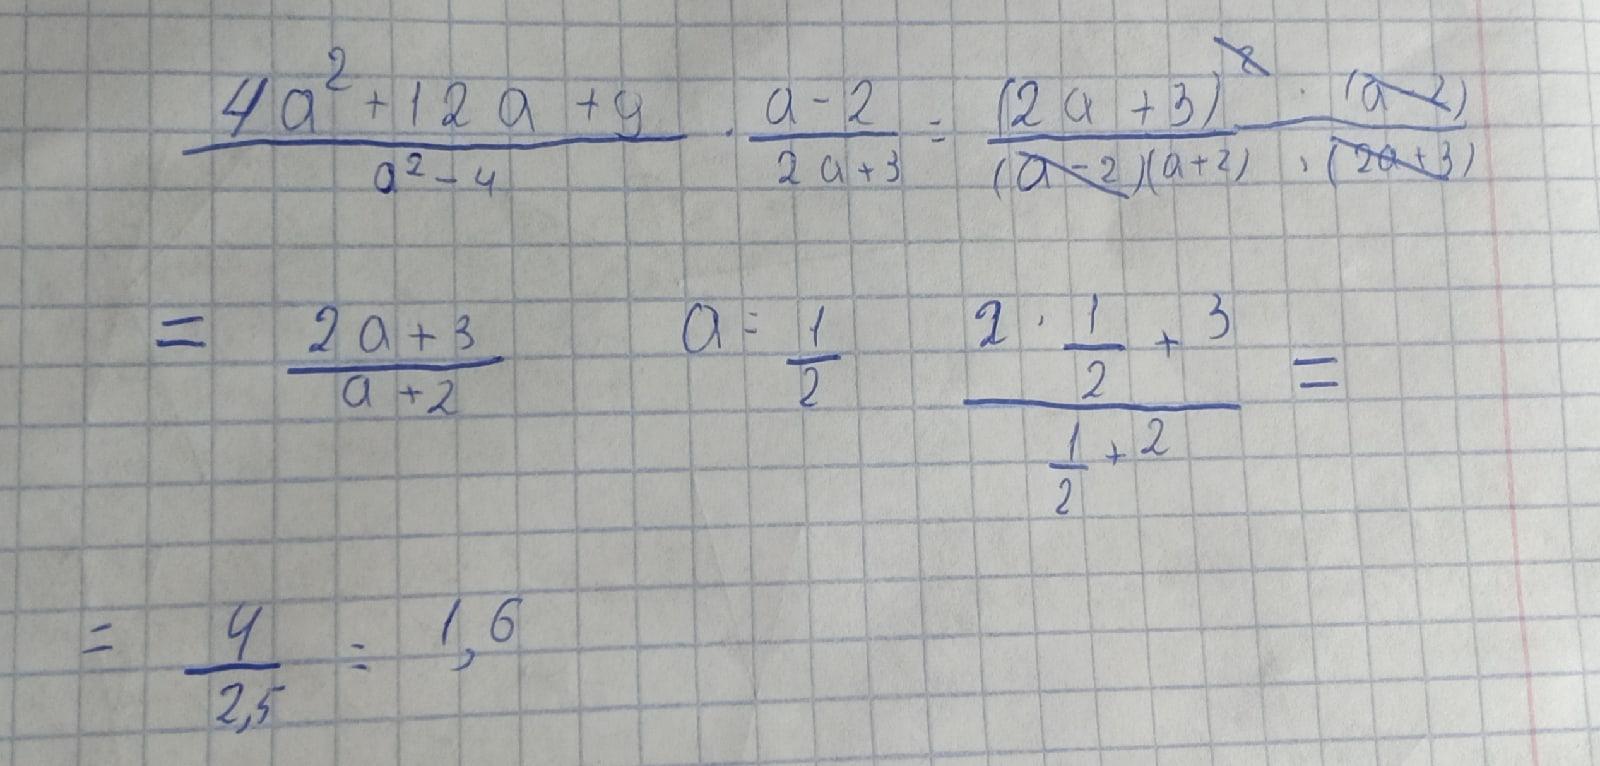 (4a²+12a+9)/(a²-4) · (a-2)/(2a+3) = ((2a+3)² · (a-2))/((a-2)(a+2) · (2a+3))
= (2a+3)/(a+2) a = 1/2 (2 · 1/2 + 3)/(1/2 + 2) =
= 4/2,5 = 1,6